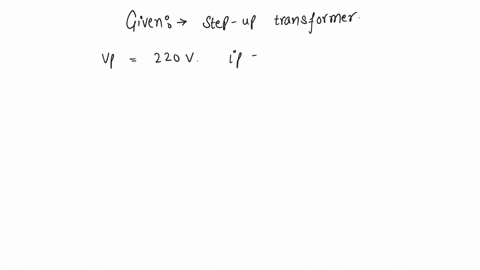 Given:→ step-up transformer.
Vp = 220 V. ip -